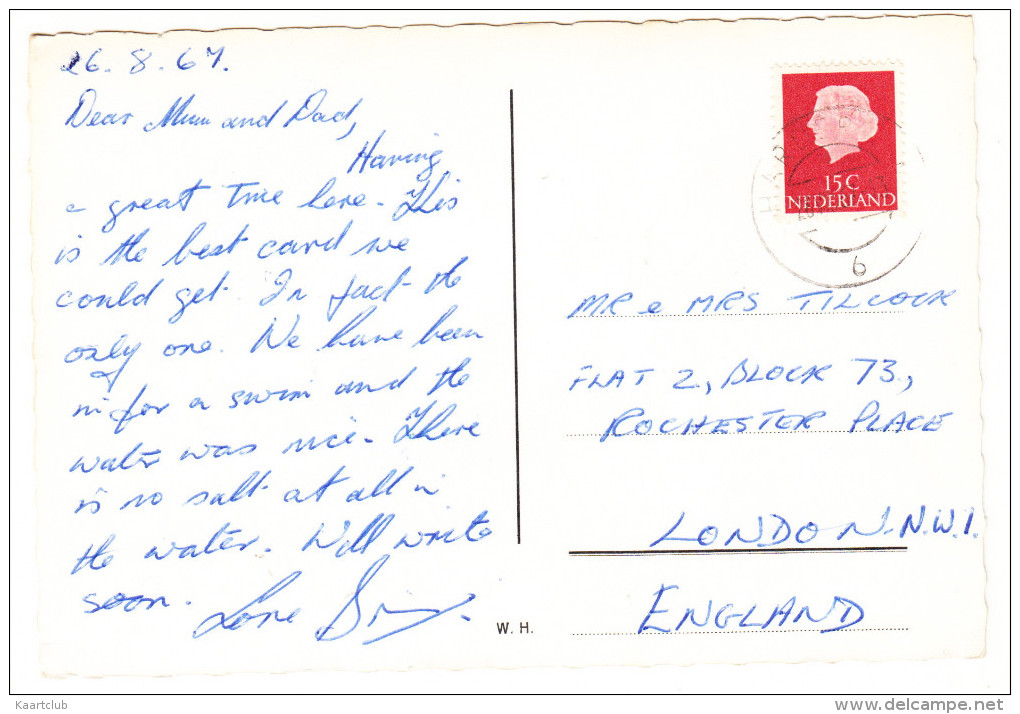 26.8.67.
Dear Mum and Dad,
Having
a great time here. This
is the best card we
could get. In fact the
only one. We have been
in for a swim and the
water was nice. There
is no salt at all in
the water. Will write
soon.
Love
15C
NEDERLAND
HARDE
6
MR & MRS TILCOCK
FLAT 2, BLOCK 73,
ROCHESTER PLACE
LONDON. N.W.1.
ENGLAND
W. H.
Kaartclub
www.delcampe.net